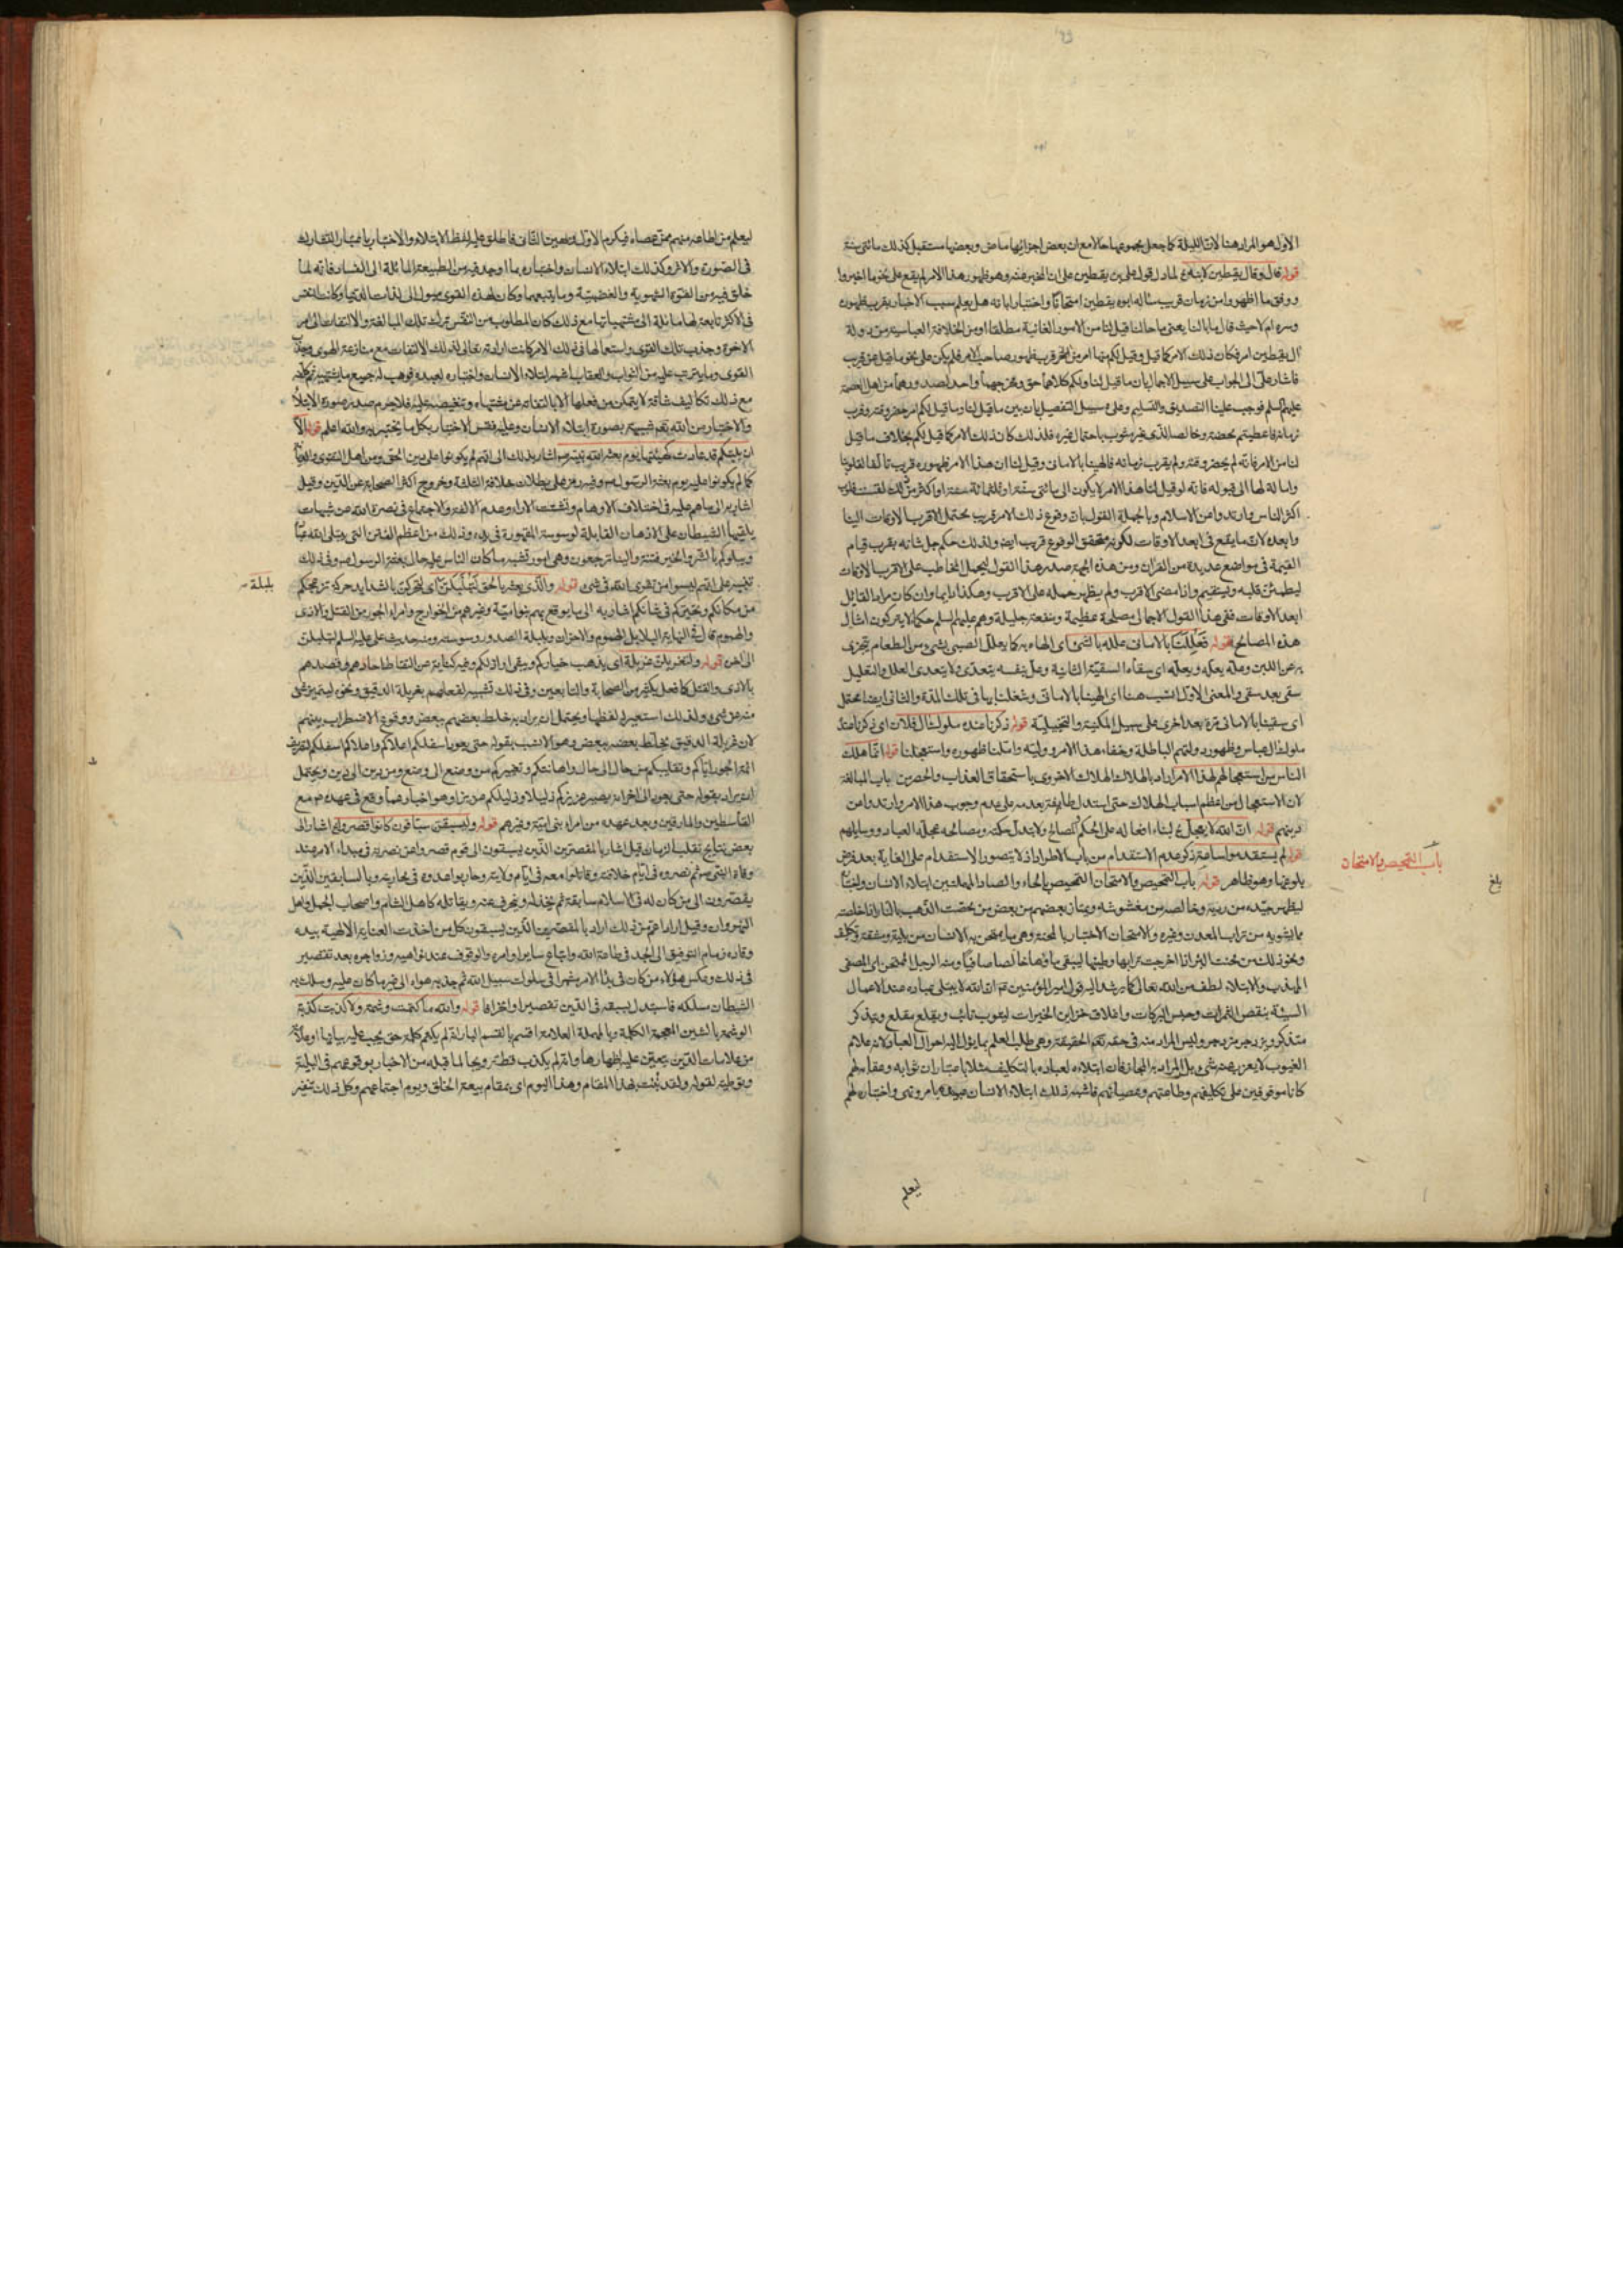 الاول هو المراد هنا لان الليلة كما جعل مجموعها حالا مع ان بعض اجزائها ماض وبعضها مستقبل كذلك مائتى سنة
قوله قال وقال يقطين لابنه لما دل قول على بن يقطين على ان المخبر عنه وهو ظهور هذا الامر لم يقع على نحو ما اخبروا
ووفق ما اظهروا من زمان قريب ساله ابوه يقطين امتحانا واختبارا بانه هل يعلم سبب الاخبار بقرب ظهوره
وسره ام لا حيث قال ما بالنا يعنى ما حالنا قيل لنا من الامور الغائبة مطلقا او من الخلافة العباسية من دولة
آل يقطين امر فكان ذلك الامر كما قيل وقيل لكم منها امر فى قرب ظهور صاحب الامر فلم يكن على نحو ما قيل عن قريب
فاشار على الى الجواب على سبيل الاجمال بان ما قيل لنا ولكم كلاهما حق ومخرجهما واحد
عليهم السلم فوجب علينا التصديق والتسليم وعلى سبيل التفصيل بان بين ما قيل لنا وما قيل لكم امر حضر وقته وقرب
زمانه فاعطيتم محضه وخالصه الذى غير مشوب باحتمال غيره فلذلك كان ذلك الامر كما قيل لكم بخلاف ما قيل
لنا من الامر فانه لم يحضر وقته ولم يقرب زمانه فالهينا بالامانى وقيل لنا ان هذا الامر ظهوره قريب تالفا لقلوبنا
وامالة لها الى قبوله فانه لو قيل لنا هذا الامر لا يكون الى مائتى سنة او ثلثمائة سنة او اكثر من ذلك لقست قلوب
اكثر الناس وارتدوا عن الاسلام وبالجملة القول بان وقوع ذلك الامر قريب يحتمل الاقرب الاوقات الينا
وابعده لان ما يقع فى ابعد الاوقات لكونه متحقق الوقوع قريب ايضا ولذلك حكم جل شانه بقرب قيام
القيمة فى مواضع عديدة من القران ومن هذه الجهة صدر هذا القول ليحمل المخاطب على الاقرب الازمان
ليطمئن قلبه ويستقيم واذا مضى الاقرب ولم يظهر حمله على الاقرب وهكذا دايما وان كان مراد القايل
ابعد الاوقات ففى هذا القول الاجمالى مصلحة عظيمة ومنفعة جليلة وهم عليهم السلم حكماء لا يتركون امثال
هذه المصالح قوله فعللنا بالامانى علله بالشئ اى الهاه به كما يعلل الصبى بشئ من الطعام يتجزى
به عن اللبن وعله يعله ويعله اى سقاه السقية الثانية وعل بنفسه يتعدى ولا يتعدى العلل والتعليل
سقى بعد سقى والمعنى الاول انسب هنا اى الهينا بالامانى وشغلنا بها فى تلك المدة والثانى ايضا محتمل
اى سقينا بالامانى مرة بعد اخرى على سبيل المكنية والتخييلية قوله ذكرنا عنده ملوك آل فلان اى ذكرنا عنده
ملوك آل عباس وظهور دولتهم الباطلة وخفاء هذا الامر وليته واملنا ظهوره واستعجلنا قوله انما هلك
الناس من استعجالهم لهذا الامر اراد بالهلاك الهلاك الاخروى باستحقاق العذاب والحصر من باب المبالغة
لان الاستعجال من اعظم اسباب الهلاك حتى استدل طايفة بعدمه على عدم وجوب هذا الامر وارتدوا عن
دينهم قوله ان الله لا يعجل لبناء افعاله على الحكم والمصالح ولا يتبدل حكمه ومصالحه بعجلة العباد ووسايلهم
قوله لم يستقدموا ساعة ذكر عدم الاستقدام من باب الاطراد اذ لا يتصور الاستقدام على الغاية بعد فرض
بلوغها وهو ظاهر قوله باب التمحيص والامتحان التمحيص بالحاء والصاد المهملتين ابتلاء الانسان واختباره
ليظهر جيده من رديه وخالصه من مغشوشه ويمتاز بعضهم من بعض من محصت الذهب بالنار اذا خلصته
مما يشوبه من تراب المعدن وغيره والامتحان الاختبار بالمحنة وهى ما يمتحن به الانسان من بلية ومشقة وتكليف
ونحو ذلك من محنت البئر اذا اخرجت ترابها وطينها ليبقى ماؤها خالصا صافيا ومنه الرجل الممتحن اى المصفى
المهذب والابتلاء لطف من الله تعالى كما يرشد اليه قول امير المؤمنين ان الله لا يبتلى عباده عند الاعمال
السيئة بنقص الثمرات وحبس البركات واغلاق خزاين الخيرات ليتوب تائب ويقلع مقلع ويتذكر
متذكر ويزدجر مزدجر وليس المراد منه فى حقه تعالى الحقيقة وهى طلب العلم بما يؤل اليه احوال العباد لانه علام
الغيوب لا يعزب عنه شئ بل المراد به المجاز فان ابتلاءه لعباده بالتكليف مثلا باعتبار ان ثوابه وعقابه لهم
كانا موقوفين على تكليفهم وطاعتهم وعصيانهم فاشبه ذلك ابتلاء الانسان عبيده بامر ونهى واختباره لهم
ليعلم
باب التمحيص والامتحان
بلغ
ليعلم من اطاعه منهم ممن عصاه فيكرم الاول ويهين الثانى فاطلق عليه لفظ الابتلاء والاختبار باعتبار التشارك
فى الصورة والاثر وكذلك ابتلاء الانسان واختباره بما اوجد فيه من الطبيعة المائلة الى الفساد فانه لما
خلق فيه من القوة الشهوية والغضبية وما يتبعهما وكان لهذه القوى ميول الى لذات الدنيا وكانت النفس
فى الاكثر تابعة لها مائلة الى مشتهياتها مع ذلك كان المطلوب من النفس ترك تلك المبالغة والالتفات الى امر
الاخرة وجذب تلك القوى واستعمالها فى ذلك الامر كانت ارادته تعالى لذلك الالتفات مع منازعة الهوى وجذب
القوى وما يترتب عليه من الثواب والعقاب اشبه ابتلاء الانسان واختباره لعبده فوهب له جميع ما يشتهيه ثم كلفه
مع ذلك تكاليف شاقة لا يتمكن من فعلها الا بالتفاته عن مشتهاه وتنغيصه عليه فلا جرم صدر صورة الابتلاء
والاختبار من الله تعالى شبيهة بصورة ابتلاء الانسان وعليه فقس الاختبار بكل ما يختبر به والله اعلم قوله الا
ان بليتكم قد عادت كهيئتها يوم بعث الله نبيه اشار بذلك الى انهم لم يكونوا على دين الحق ومن اهل التقوى
كما لم يكونوا عليه يوم بعثة الرسول وفيه رمز على بطلان خلافة الثلثة وخروج اكثر الصحابة عن الدين وقيل
اشار به الى ما هم عليه من اختلاف الاوهام وتشتت الاراء وعدم الالفة والاجتماع فى نصرة الله من شبهات
يلقيها الشيطان على الاذهان القابلة لوسوسته المقهورة فى يده وذلك من اعظم الفتن التى يبتلى الله
ويبلوكم بالشر والخير فتنة والينا ترجعون وهى امور تشبه ما كان الناس عليه حال بعثة الرسول وفى ذلك
تنبيه على انهم ليسوا من تقوى الله فى شئ قوله والذى بعثه بالحق لتبلبلن بلبلة اى لتحركن بالشدايد حركة تزعجكم
من مكانكم وتحيركم فى شانكم اشار به الى ما يوقع بهم بنو امية وغيرهم من الخوارج وامراء الجور من القتل والاذى
والهموم قال فى النهاية البلابل الهموم والاحزان وبلبلة الصدر وسوسته ومنه حديث على عليه السلم لتبلبلن
الى اخره قوله ولتغربلن غربلة اى يذهب خياركم ويبقى اراذلكم وفيه كناية عن التقاط احادهم وقصدهم
بالاذى والقتل كما فعل بكثير من الصحابة والتابعين وفى ذلك تشبيه لفعلهم بغربلة الدقيق ونحوه ليتميز شئ
منه عن شئ ولذلك استعير له لفظها ويحتمل ان يراد به خلط بعضهم ببعض ووقوع الاضطراب بينهم
لان غربلة الدقيق تخلط بعضه ببعض وهو الانسب بقوله حتى يعود اسفلكم اعلاكم واعلاكم اسفلكم
ائمة الجور اياكم وتقليبكم من حال الى حال واهانتكم وتغييركم من وضع الى وضع ومن دين الى دين ويحتمل
ان يراد بقوله حتى يعود الى اخره ان يصير عزيزكم ذليلا وذليلكم عزيزا وهو اخبار عما وقع فى عهده مع
القاسطين والمارقين وبعد عهده من امراء بنى امية وغيرهم قوله وليسبقن سباقون كانوا قصروا اشار الى
بعض نتايج تقلب الزمان قيل اشار بالمقصرين الذين يسبقون الى قوم قصروا عن نصرته فى مبداء الامر عند
وفاة النبى ثم نصروه فى ايام خلافته وقاتلوا معه فى ايام ولايته وحاربوا عدوه فى محاربته وبالسابقين الذين
يقصرون الى من كان له فى الاسلام سابقة ثم يخذله وينحرف عنه ويقاتله كاهل الشام واصحاب الجمل واهل
النهروان وقيل اراد اعم من ذلك اراد بالمقصرين الذين يسبقون كل من اخذت العناية الالهية بيده
وقاده زمام التوفيق الى الجد فى طاعة الله واتباع ساير اوامره والوقوف عند نواهيه وزواجره بعد تقصير
فى ذلك وعكس هؤلاء من كان فى بدء الامر مشمرا فى سلوك سبيل الله ثم جذبه هواه الى غير ما كان عليه وسلك به
الشيطان مسلكه فاستبدل بسبقه فى الدين تقصيرا وانحرافا قوله والله ما كتمت وشمة ولا كذبت كذبة
الوشمة بالشين المعجمة الكلمة وبالمهملة العلامة اقسم بالقسم البار انه لم يكتم كلمة حق يجب عليه بيانها او علامة
من علامات الدين يتعين عليه اظهارها وانه لم يكذب قط ترويجا لما قبله من الاخبار بوقوعهم فى البلية
وتوطية لقوله ولقد نبئت بهذا المقام وهذا اليوم اى بمقام بيعة الخلق ويوم اجتماعهم وكل ذلك تنفير
بلبلة